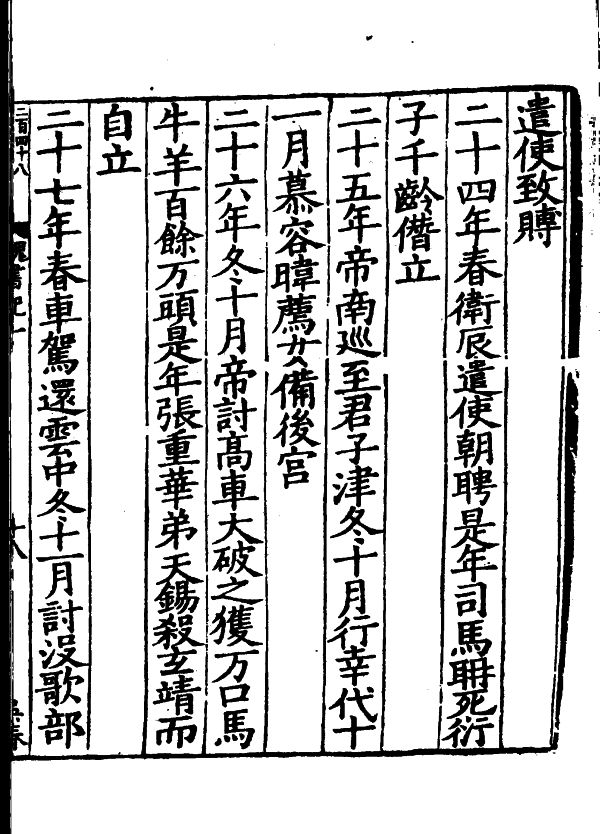 遣使致賻
二十四年春衛辰遣使朝聘是年司馬聃死衍
子千齡僭立
二十五年帝南巡至君子津冬十月行幸代十
一月慕容暐薦女備後宮
二十六年冬十月帝討高車大破之獲万口馬
牛羊百餘万頭是年張重華弟天錫殺玄靖而
自立
二十七年春車駕還雲中冬十一月討没歌部
二百四十八
魏書紀一
十八